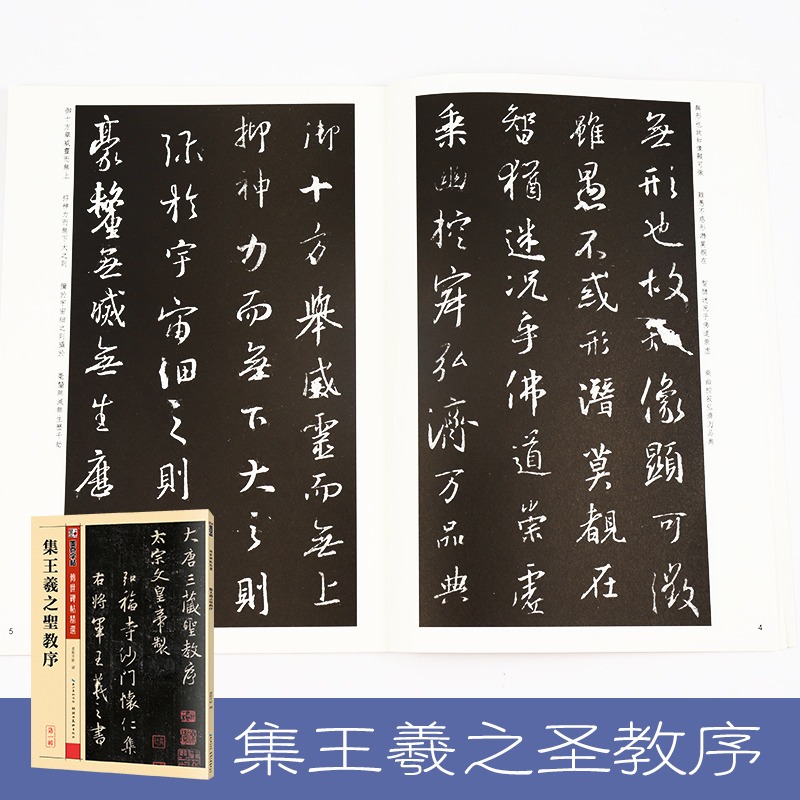 無形也故知像顯可徵
雖愚不惑形潛莫覩在
智猶迷况乎佛道崇虛
乘幽控寂弘濟万品典
4
御十方舉威靈而無上
抑神力而無下大之則
弥於宇宙細之則
豪釐無滅無生歷
5
大唐三藏聖教序
太宗文皇帝製
弘福寺沙門懷仁集
右將軍王羲之書
墨点字帖
傳世碑帖精選
集王羲之聖教序
第一輯
集王羲之圣教序